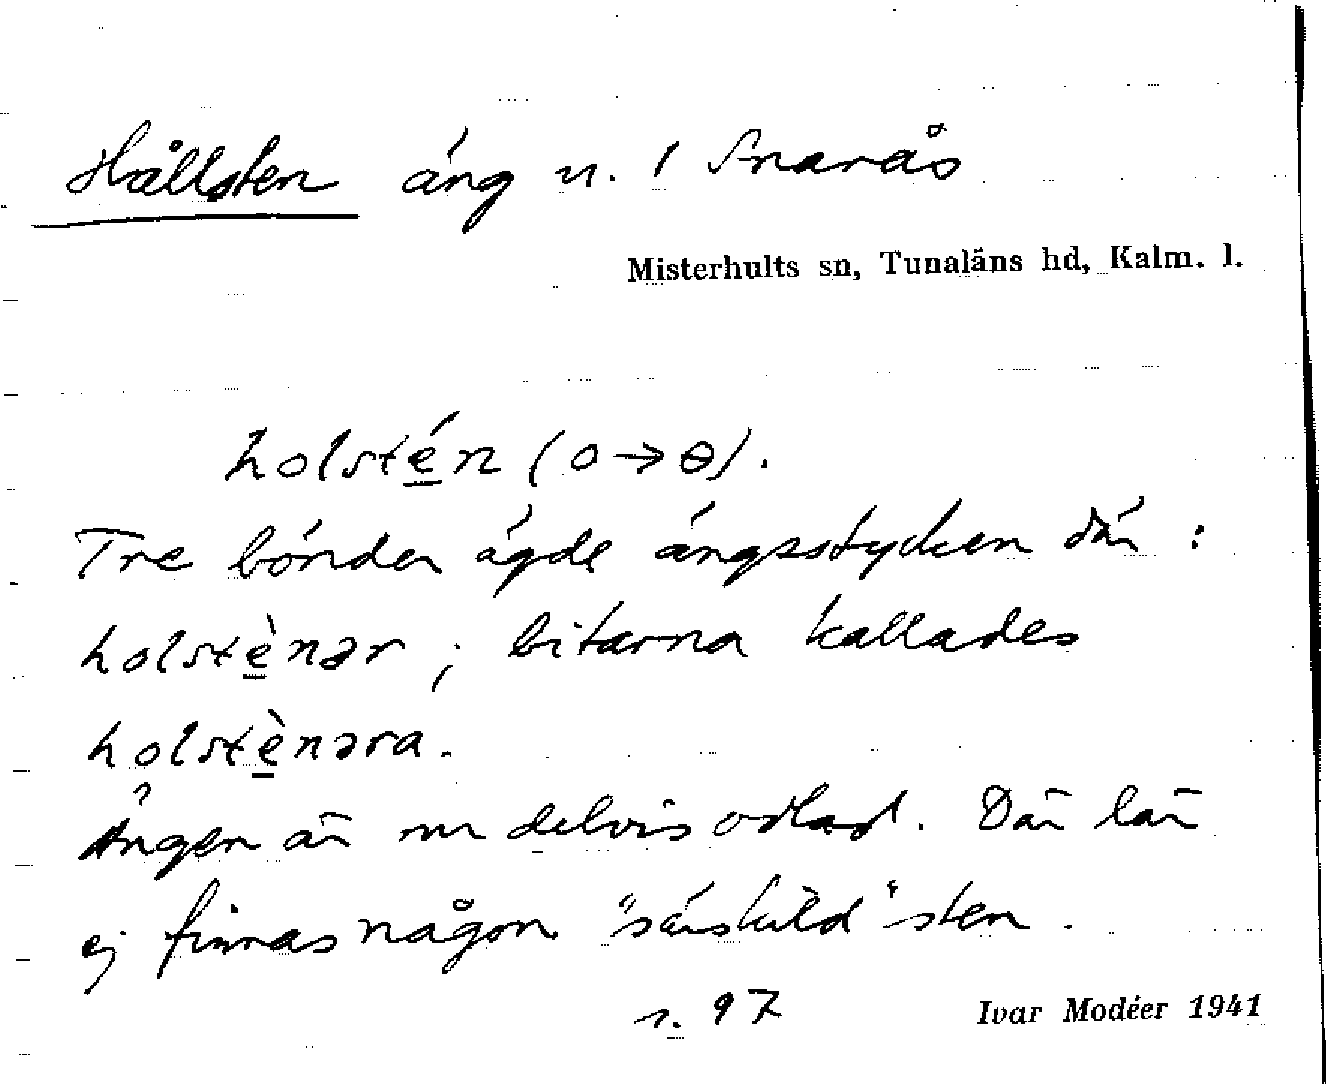 Hållsten äng n. 1 Snarås
Misterhults sn, Tunaläns hd, Kalm. l.
holstén (o→ɵ).
Tre bönder ägde ängsstycken där:
holstènər; bitarna kallades
holstènəra.
Ängen är nu delvis odlad. Där lär
ej finnas någon "särskild" sten.
s. 97
Ivar Modéer 1941